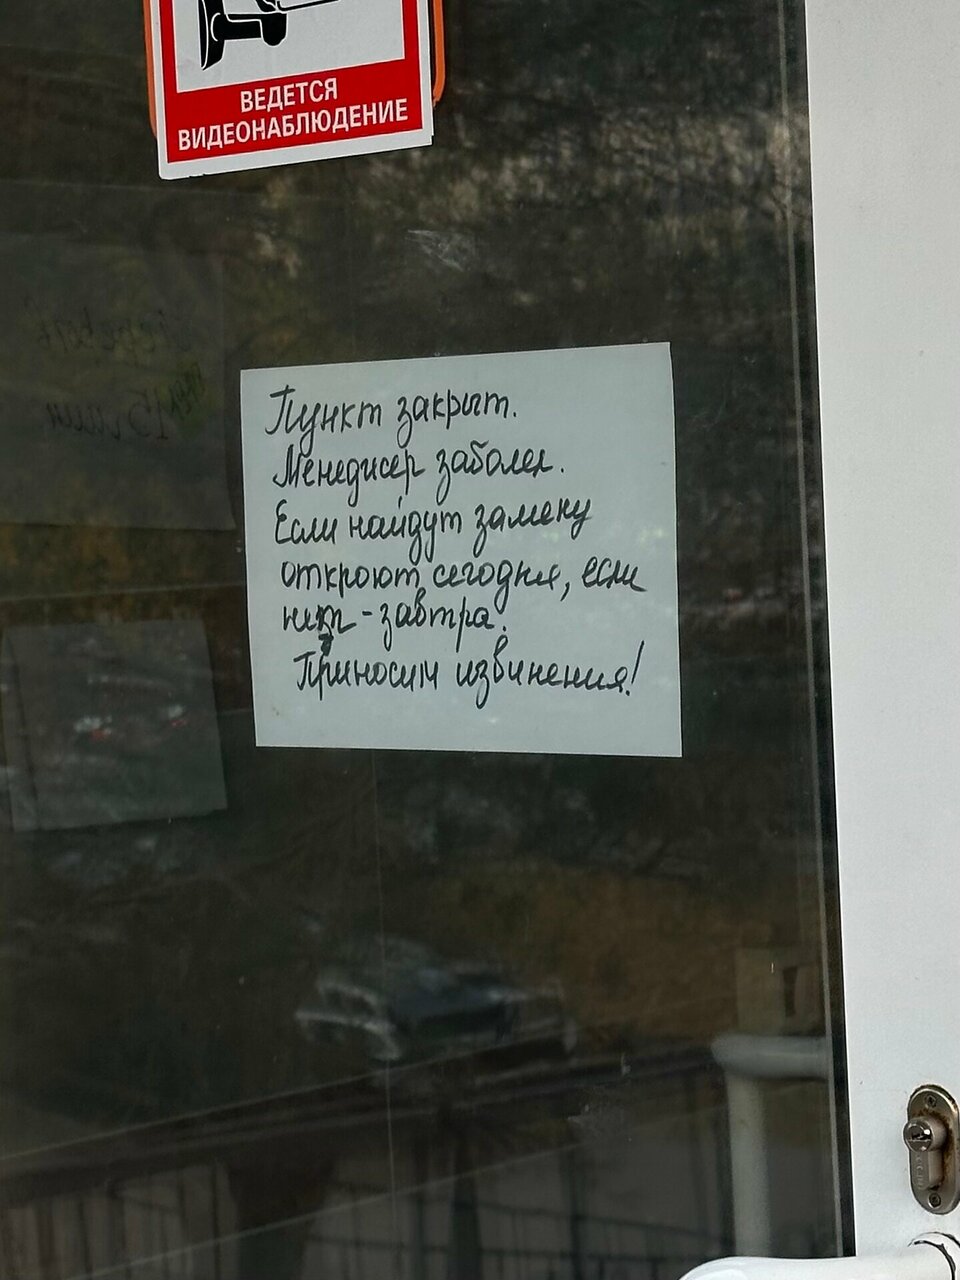 ВЕДЕТСЯ
ВИДЕОНАБЛЮДЕНИЕ
Пункт закрыт.
Менеджер заболел.
Если найдут замену
откроют сегодня, если
нет - завтра.
Приносим извинения!
15 мин